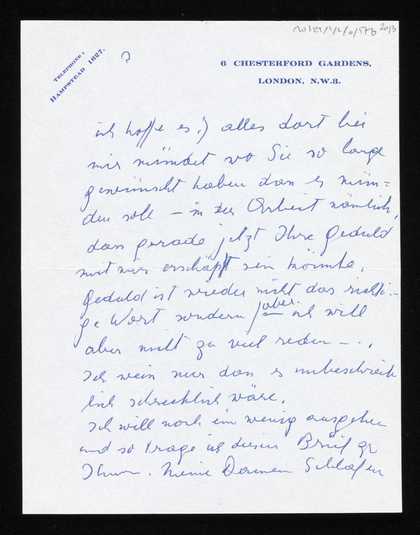 TELEPHONE:
HAMPSTEAD 1627.
6 CHESTERFORD GARDENS,
LONDON, N.W.3.
ich hoffe es!) alles dort bei
mir mündet wo Sie so lange
gewünscht haben dass es mün-
den soll – in der Arbeit nämlich,
dass gerade jetzt Ihre Geduld
mit mir erschöpft sein könnte.
Geduld ist wieder nicht das richti-
ge Wort sondern aber ich will
aber nicht zu viel reden –.
Ich weiss nur dass es unbeschreib
lich schrecklich wäre.
Ich will noch ein wenig ausgehen
und so trage ich diesen Brief zu
Ihnen. Meine Damen schlafen